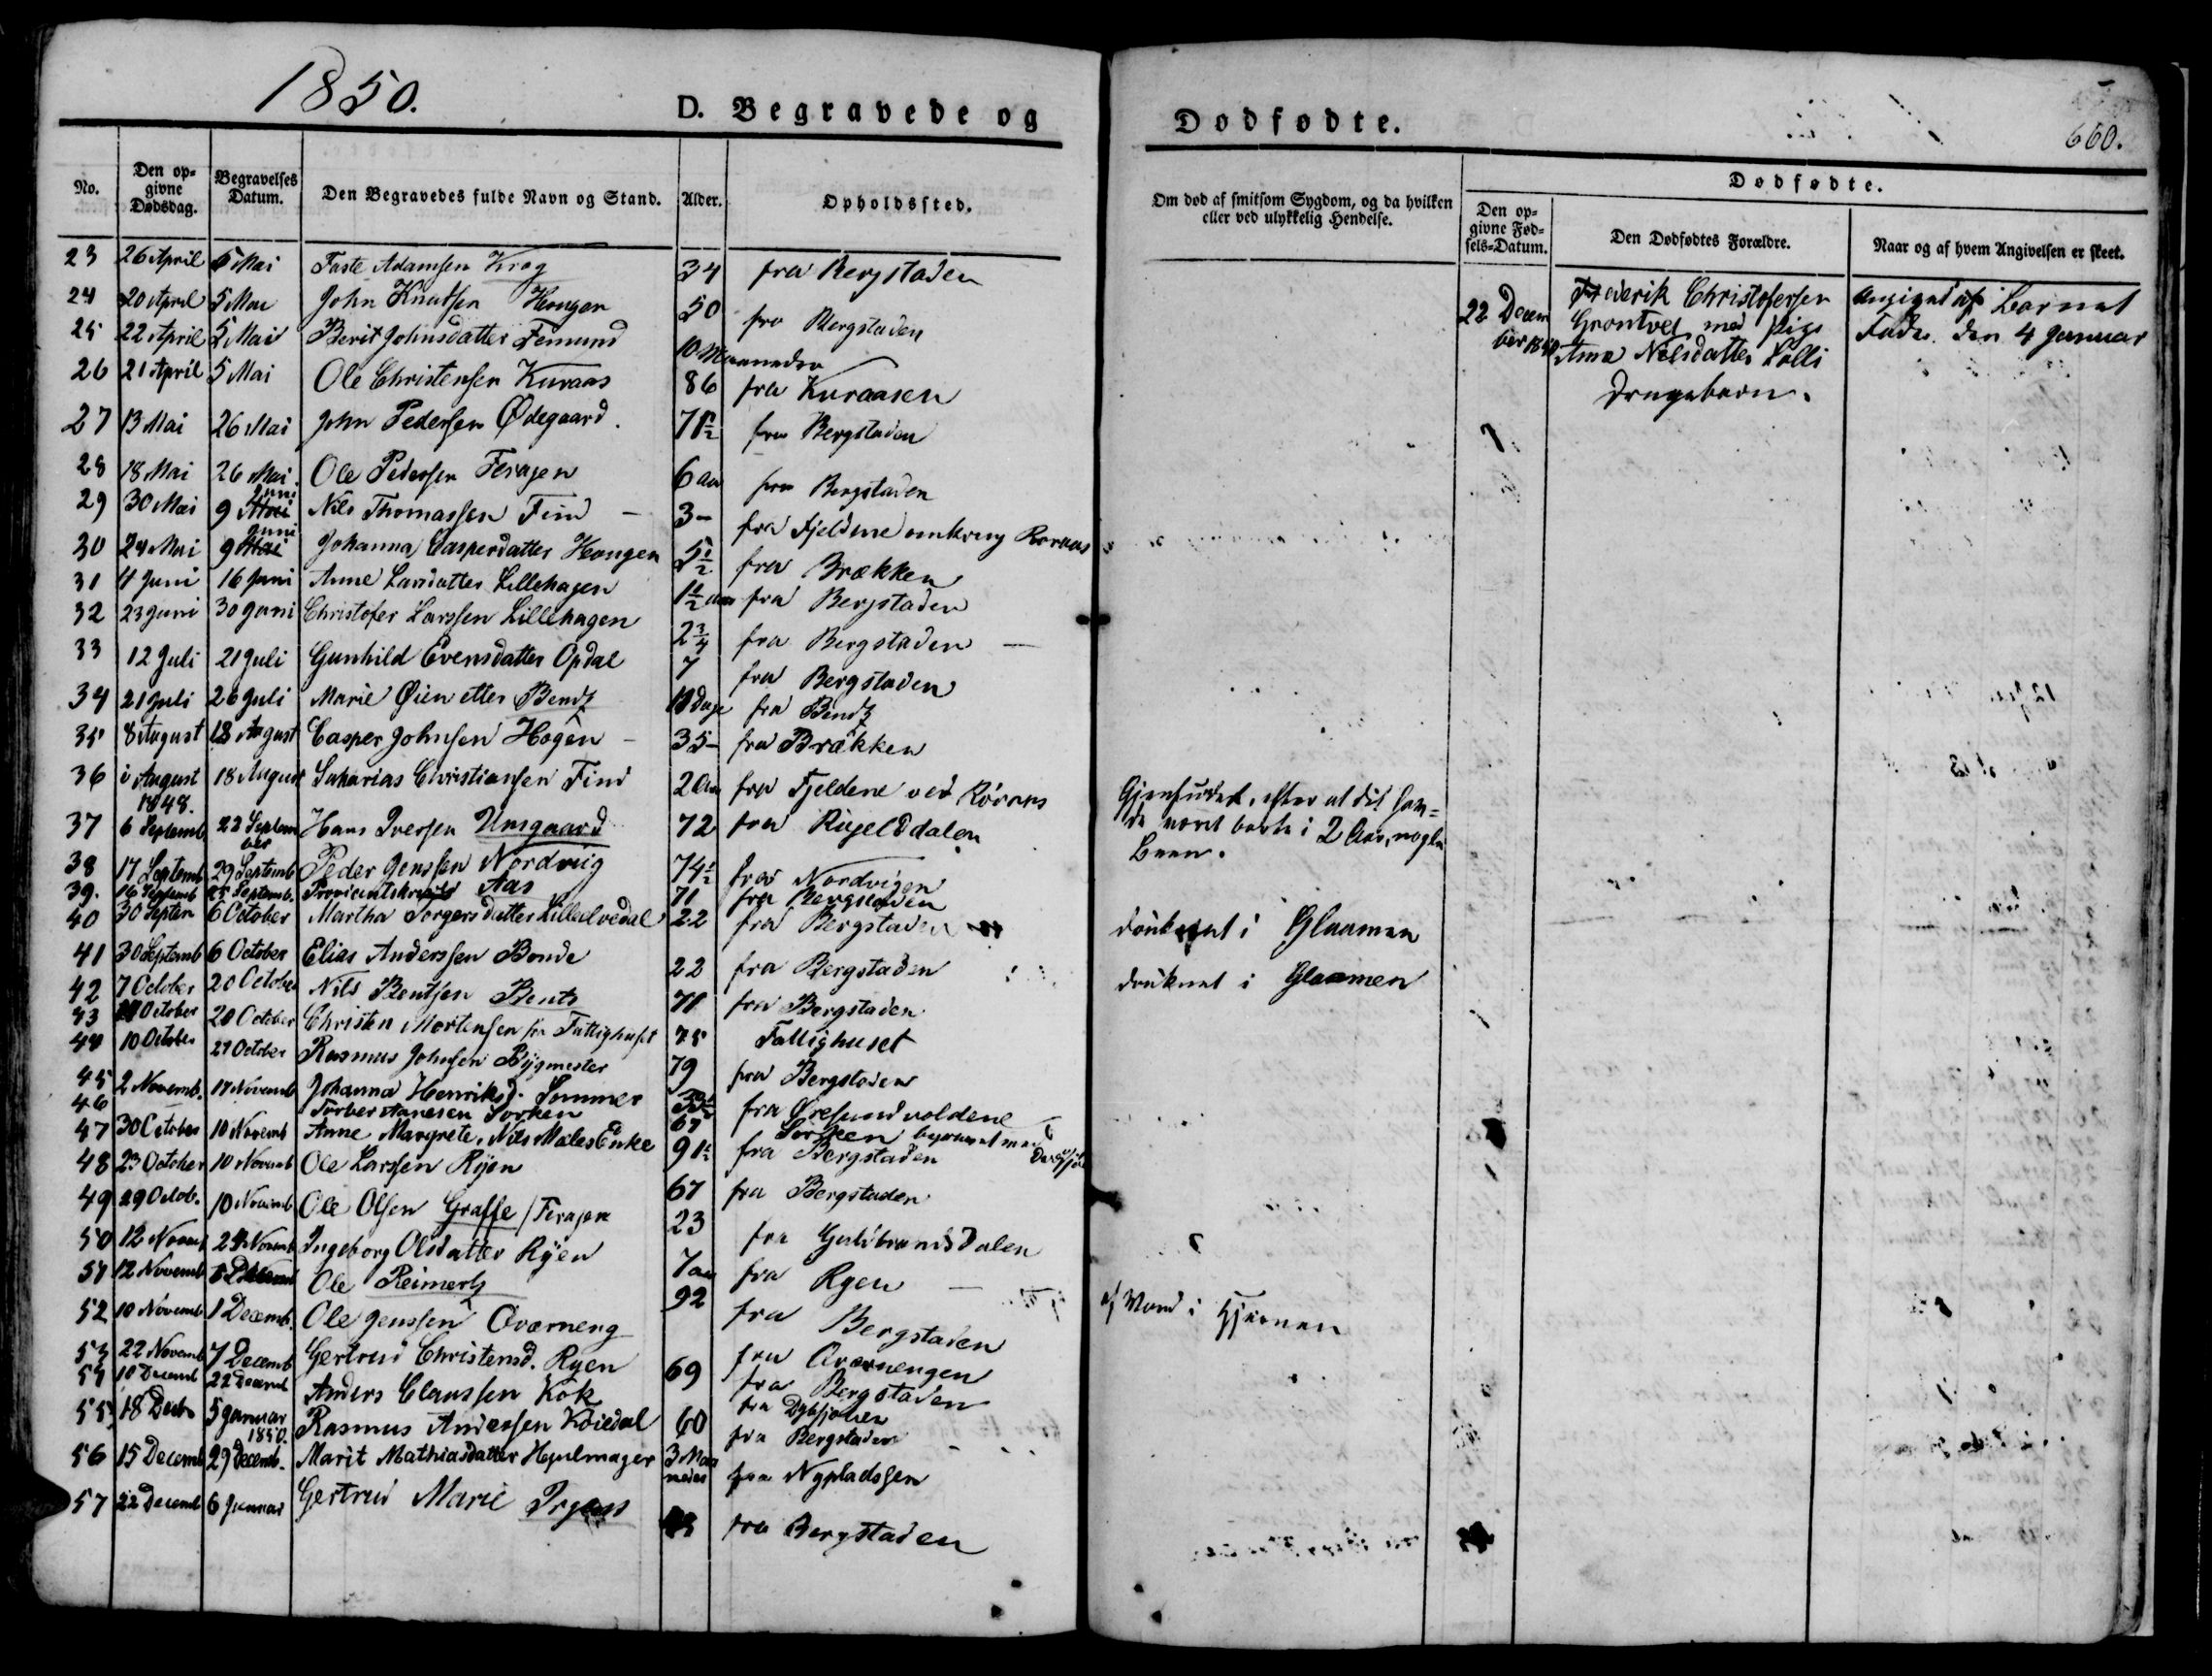 1850.
D. Begravede og Dødfødte.
660.
No. Den opgivne Dødsdag. Begravelses Datum. Den Begravedes fulde Navn og Stand. Alder. Opholdssted.
Om død af smitsom Sygdom, og da hvilken eller ved ulykkelig Hendelse.
Dødfødte.
Den opgivne Fødsels-Datum. Den Dødfødtes Forældre. Naar og af hvem Angivelsen er skeet.
23 26 April 5 Mai Taste Adamsen Krag 34 fra Bergstaden
24 20 April 5 Mai John Knudsen Hougen 50 fra Bergstaden
25 22 April 5 Mai Berit Johnsdatter Femund 10 Maaneder
26 21 April 5 Mai Ole Christensen Kuraas 86 fra Kuraasen
27 13 Mai 26 Mai John Pedersen Ødegaard. 71½ fra Bergstaden
28 18 Mai 26 Mai. Ole Pedersen Feragen 6 aar fra Bergstaden
29 30 Mai 9 Juni Nils Thomassen Find - 3 - fra Fjeldene omkring Røraas
30 24 Mai 9 Juni Johanna Caspersdatter Hougen 5½ fra Brækken
31 4 Juni 16 Juni Anne Larsdatter Lillehagen 1½ aar fra Bergstaden
32 23 Juni 30 Juni Christofer Larssen Lillehagen 2¾ fra Bergstaden
33 12 Juli 21 Juli Gunhild Evensdatter Opdal 7 fra Bergstaden
34 21 Juli 26 Juli Marie Øien etter Bendz Dage fra Bendz
35 8 August 18 August Casper Johnsen Hogen - 35 - fra Brækken
36 i August 1848. 18 August Saharias Christiansen Find 20 aar fra Fjeldene ved Røraas
37 6 Septemb 22 September Hans Iversen Ursgaard 72 fra Rugelddalen
38 17 Septemb 29 Septemb Peder Jenssen Nordviig 74½ fra Nordvigen
39. 16 Septemb 25 Septemb. Aas 71 fra Bergstaden
40 30 Septem 6 October Martha Torgersdatter Lilleelvedal 22 fra Bergstaden
41 30 Septemb 6 October Elias Anderssen Bonde 22 fra Bergstaden
42 7 October 20 October Nils Bentsen Bentz 71 fra Bergstaden
43 October 20 October Christen Mortensen fra Fattighuset 75 Fattighuset
44 10 October 27 October Rasmus Johnsen Bygmester 79 fra Bergstaden
45 2 Novemb. 17 Novemb Johanna Henriksd. Sommer fra Øresundvoldene
46 Sorken 67 Sorken
47 30 October 10 Novemb Anne Margrete, Nils Males Enke 91½ fra Bergstaden
48 23 October 10 Novemb Ole Larssen Ryen 67 fra Bergstaden
49 29 Octob. 10 Novemb Ole Olsen Graffe / Feragen 23 fra Gulbrandsdalen
50 12 Novemb 24 Novemb Ingeborg Olsdatter Ryen 7 aar fra Ryen
51 12 Novemb Ole Reimertz 92 fra Bergstaden
52 10 Novemb 1 Decemb. Ole Jenssen Qværneng fra Qværnengen
53 22 Novemb 7 Decemb Gertrud Christensd. Ryen 69 fra Bergstaden
54 10 Decemb 22 Decemb Anders Claussen Kok fra
55 18 Decb 5 Januar 1850. Rasmus Anderssen Koiedal 60 fra Bergstaden
56 15 Decemb 29 Decemb. Marit Mathiasdatter Hjulmager 3 Maaneder fra Nypladssen
57 22 Decemb 6 Januar Gertrud Marie fra Bergstaden
22 December
Frederik Christofersen
Grontvet med Pige
Anne Nilsdatter Lølli
Drengebarn.
Angivet af Barnets
Fader den 4 Januar
Gjenfundet, efter at det havde
været borte i 2 Aar, nogle
Been.
druknet i Glaamen
druknet i Glaamen
af Vand i Hjernen